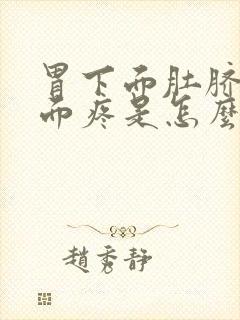 胃下而肚脐
而疼是怎麼
趙秀静